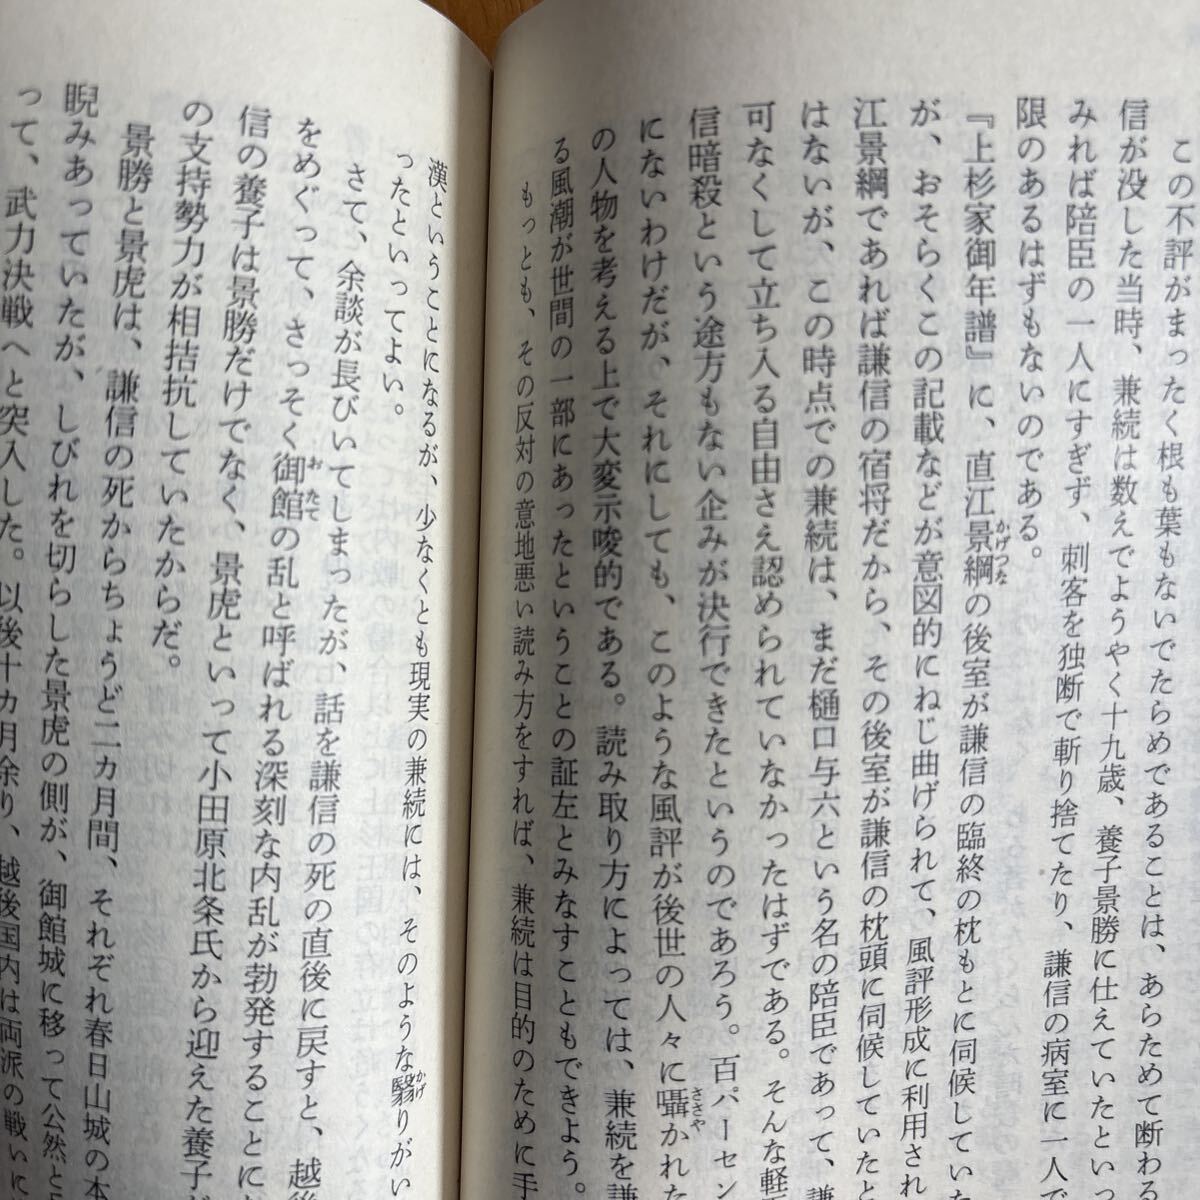 この不評がまったく根も葉もないでたらめであることは、あらためて断わる
信が没した当時、兼続は数えでようやく十九歳、養子景勝に仕えていたといっ
みれば陪臣の一人にすぎず、刺客を独断で斬り捨てたり、謙信の病室に一人で
限のあるはずもないのである。
『上杉家御年譜』に、直江景綱の後室が謙信の臨終の枕もとに伺候していた
が、おそらくこの記載などが意図的にねじ曲げられて、風評形成に利用され
江景綱であれば謙信の宿将だから、その後室が謙信の枕頭に伺候していたと
はないが、この時点での兼続は、まだ樋口与六という名の陪臣であって、謙
可なくして立ち入る自由さえ認められていなかったはずである。そんな軽
信暗殺という途方もない企みが決行できたというのであろう。百パーセン
にないわけだが、それにしても、このような風評が後世の人々に囁かれた
の人物を考える上で大変示唆的である。読み取り方によっては、兼続を謙
る風潮が世間の一部にあったということの証左とみなすこともできよう。
もっとも、その反対の意地悪い読み方をすれば、兼続は目的のために手
漢ということになるが、少なくとも現実の兼続には、そのような翳りがい
ったといってよい。
さて、余談が長びいてしまったが、話を謙信の死の直後に戻すと、越後
をめぐって、さっそく御館の乱と呼ばれる深刻な内乱が勃発することに
信の養子は景勝だけでなく、景虎といって小田原北条氏から迎えた養子
の支持勢力が相拮抗していたからだ。
景勝と景虎は、謙信の死からちょうど二カ月間、それぞれ春日山城の本
睨みあっていたが、しびれを切らした景虎の側が、御館城に移って公然と
って、武力決戦へと突入した。以後十カ月余り、越後国内は両派の戦いに